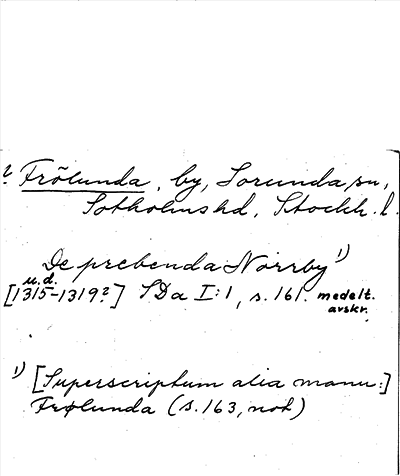 ? Frölunda, by, Sorunda sn,
Sotholms hd, Stockh. l.
De prebenda Norrby 1)
u.d.
[1315-1319?] SDa I:1, s. 161. medelt.
avskr.
1) [Superscriptum alia manu:]
Frølunda (s. 163, not)